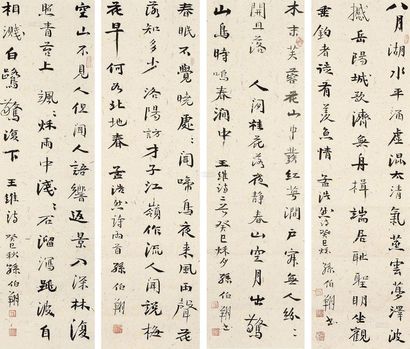 八月湖水平涵虛混太清氣蒸雲夢澤波
撼岳陽城欲濟無舟楫端居恥聖明坐觀
垂釣者徒有羨魚情 孟浩然詩 癸巳秋 孫伯翔書
木末芙蓉花山中發紅萼澗戶寂無人紛:
開且落 人閑桂花落夜靜春山空月出驚
山鳥時鳴春澗中 王維詩二首 癸巳秋夕 孫伯翔書
春眠不覺曉處:聞啼鳥夜来風雨聲花
落知多少 洛陽訪才子江嶺作流人聞說梅
花早何如北地春 孟浩然詩兩首 孫伯翔
空山不見人但聞人語響返景入深林復
照青苔上 颯:秋雨中淺:石溜瀉跳波自
相濺白鷺驚復下 王維詩 癸巳秋 孫伯翔